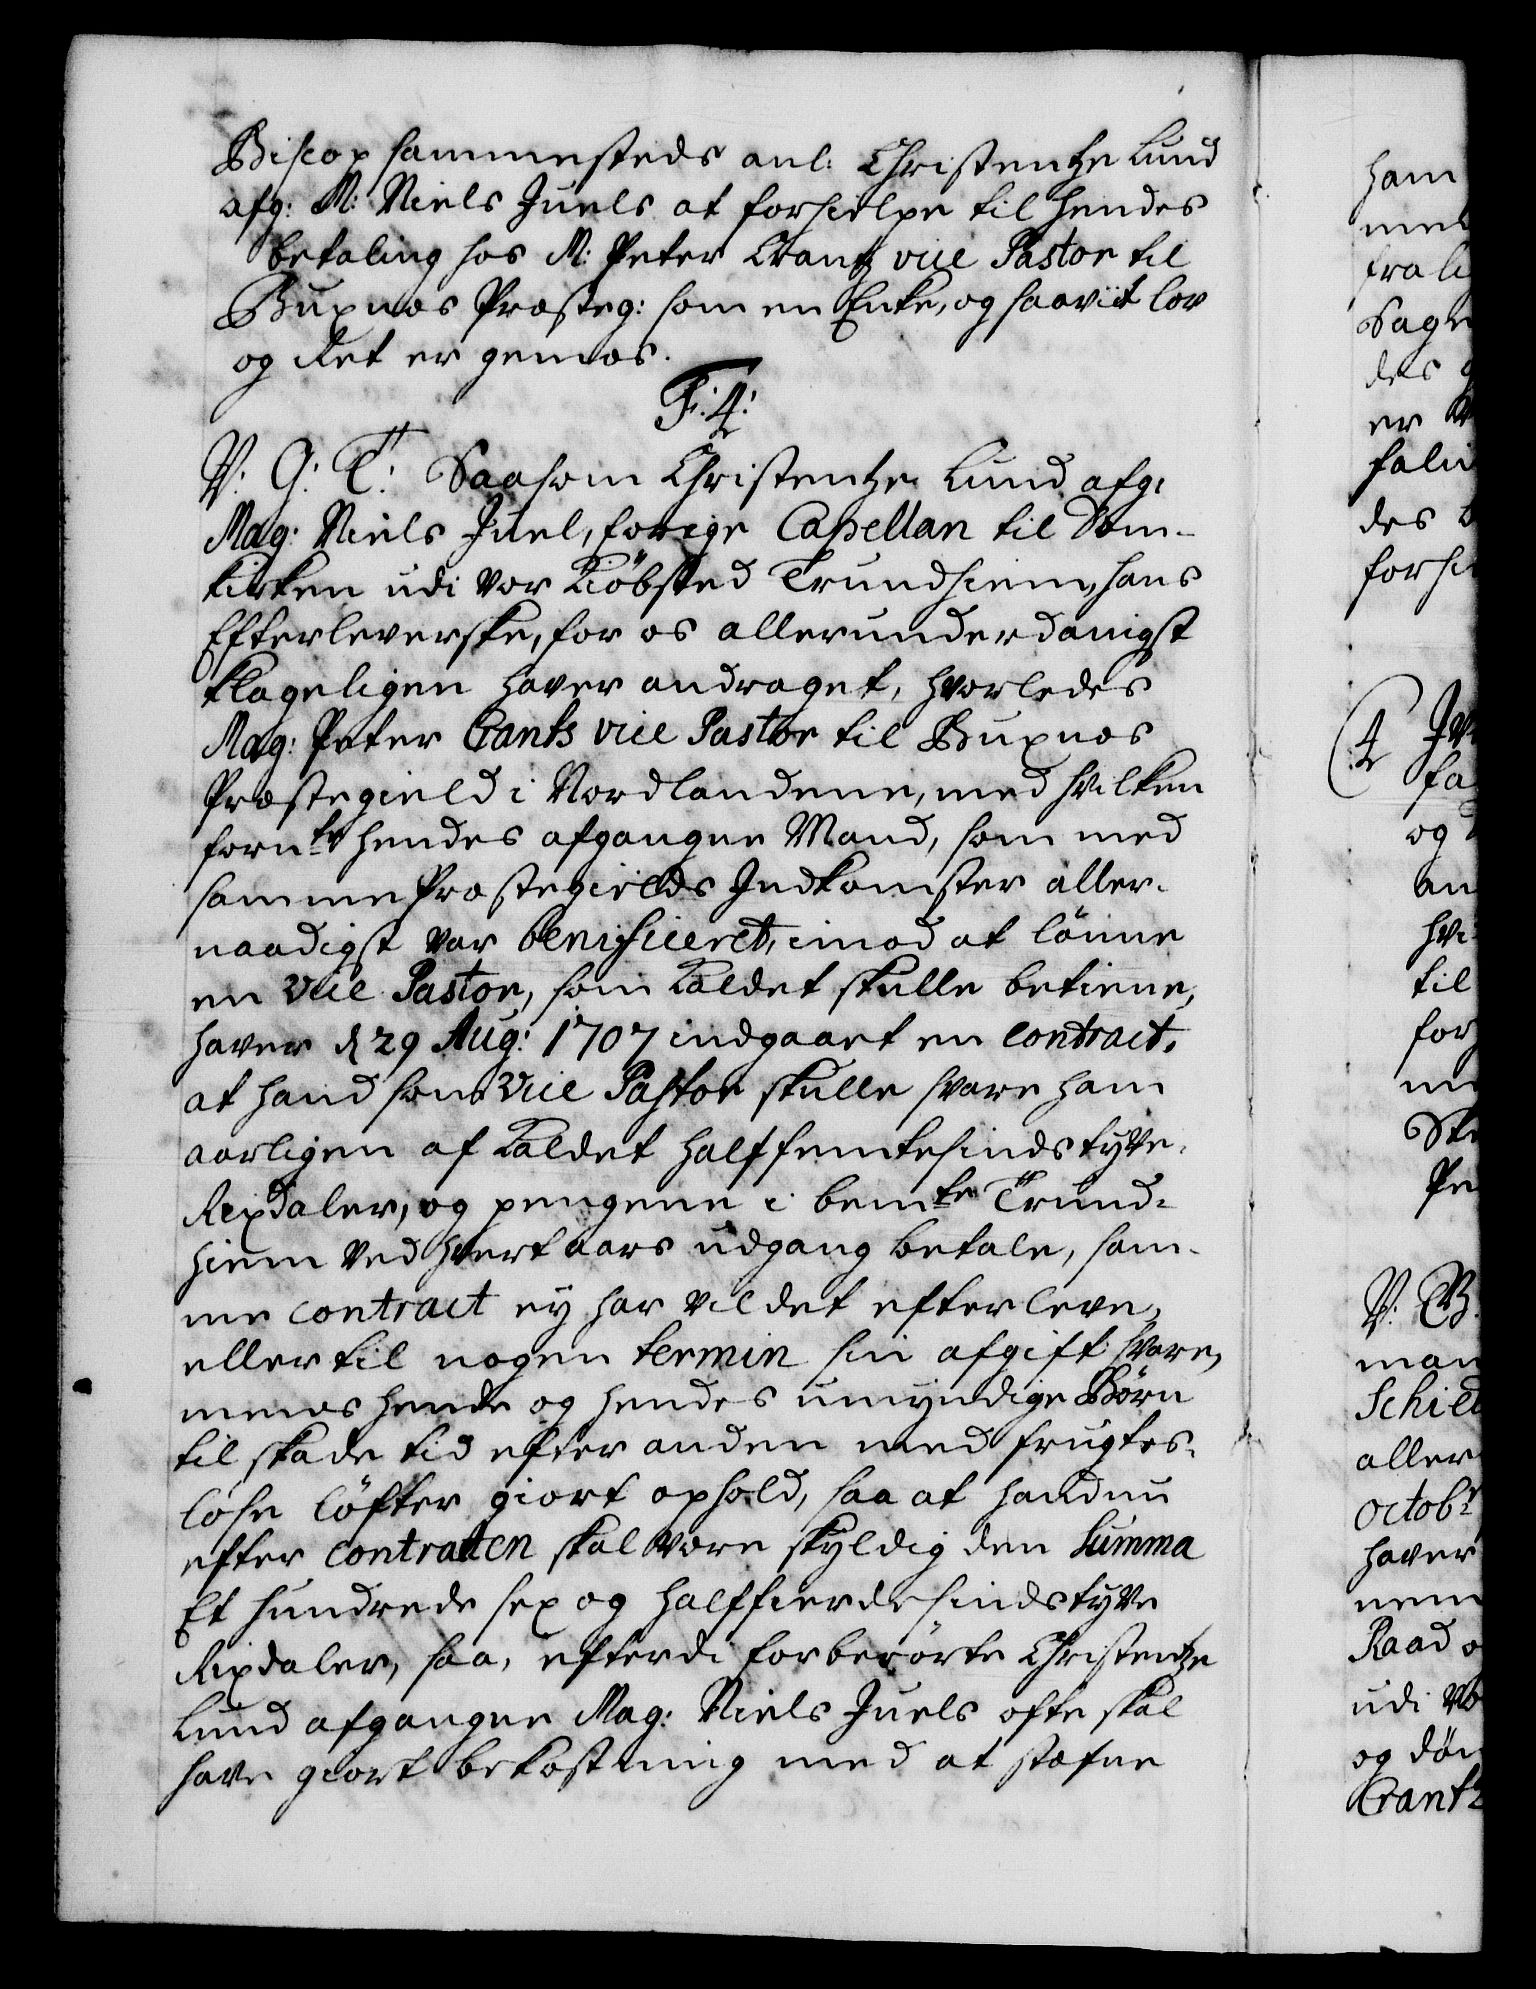 Biscop sammesteds anl: Christentze Lund
afg: M: Niels Juels at forhielpe til hendes
betaling hos M: Peter Crantz vice Pastor til
Buxnæs Præsteg: som en Enke, og saaviit lov
og Ret er gemæs.
F: 4:
V: G: T: Saasom Christentze Lund afg:
Mag: Niels Juel, forige Capellan til Dom-
kirken udi vor Kiöbsted Trundhiem, hans
Efterleverske, for os allerunderdanigst
klageligen haver andraget, hvorledes
Mag: Peter Crants vice Pastor til Buxnæs
Præstegield i Nordlandene, med hvilken
fornte hendes afgangne Mand, som med
samme Præstegields Indkomster aller-
naadigst var benificeret, imod at lönne
en vice Pastor, som Kaldet skulle betiene,
haver d 29 Aug: 1707 indgaaet en contract,
at hand som vice Pastor skulle svare ham
aarligen af Kaldet halffemtesindstyve
Rixdaler, og pengene i bemte Trund-
hiem ved hvert aars udgang betale, sam-
me contract ey har vildet efterleve,
eller til nogen termin sin afgift svare,
mens hende og hendes umyndige Børn
til skade tid efter anden med frugtes-
løse løfter giort ophold, saa at hand nu
efter contracten skal være skyldig den Summa
Et hundrede sex og halffierdesindstyve
Rixdaler, saa, efterdi forberörte Christentze
Lund afgangne Mag: Niels Juels ofte skal
have giort bekostning med at stæfne
ham
fra
Sagn
des
er
des
4
fa
og
an
hvi
til
for
Pe
V:
man
Schiel
aller
octobr
haver
Raad
udi
og
Crantz